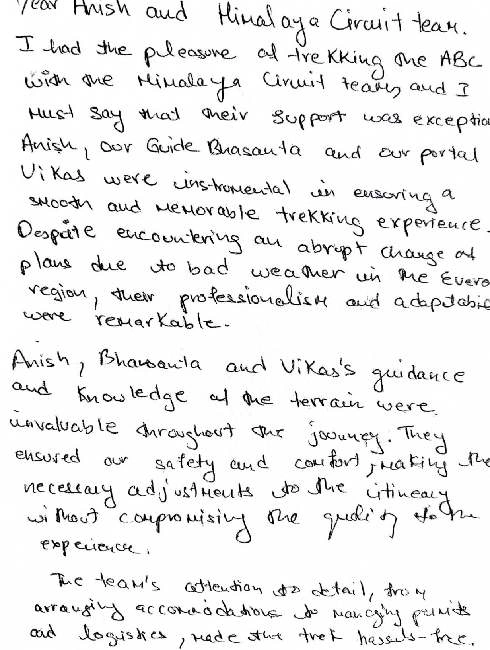 Dear Anish and Himalaya Circuit team.
I had the pleasure of trekking the ABC
with the Himalaya Circuit team, and I
must say that their support was exceptio
Anish, our Guide Bhasanta and our portal
Vikas were instromental in ensuring a
smooth and memorable trekking experience.
Despite encountering an abrupt change of
plans due to bad weather in the Evere
region, their professionalism and adaptabil
were remarkable.
Anish, Bhasanta and Vikas's guidance
and knowledge of the terrain were
invaluable throughout the journey. They
ensured our safety and comfort, making the
necessary adjustments to the itineary
without compromising the quality to the
experience.
The team's attention to detail, from
arranging accommodations to managing permits
and logistics, made the trek hassels-free.